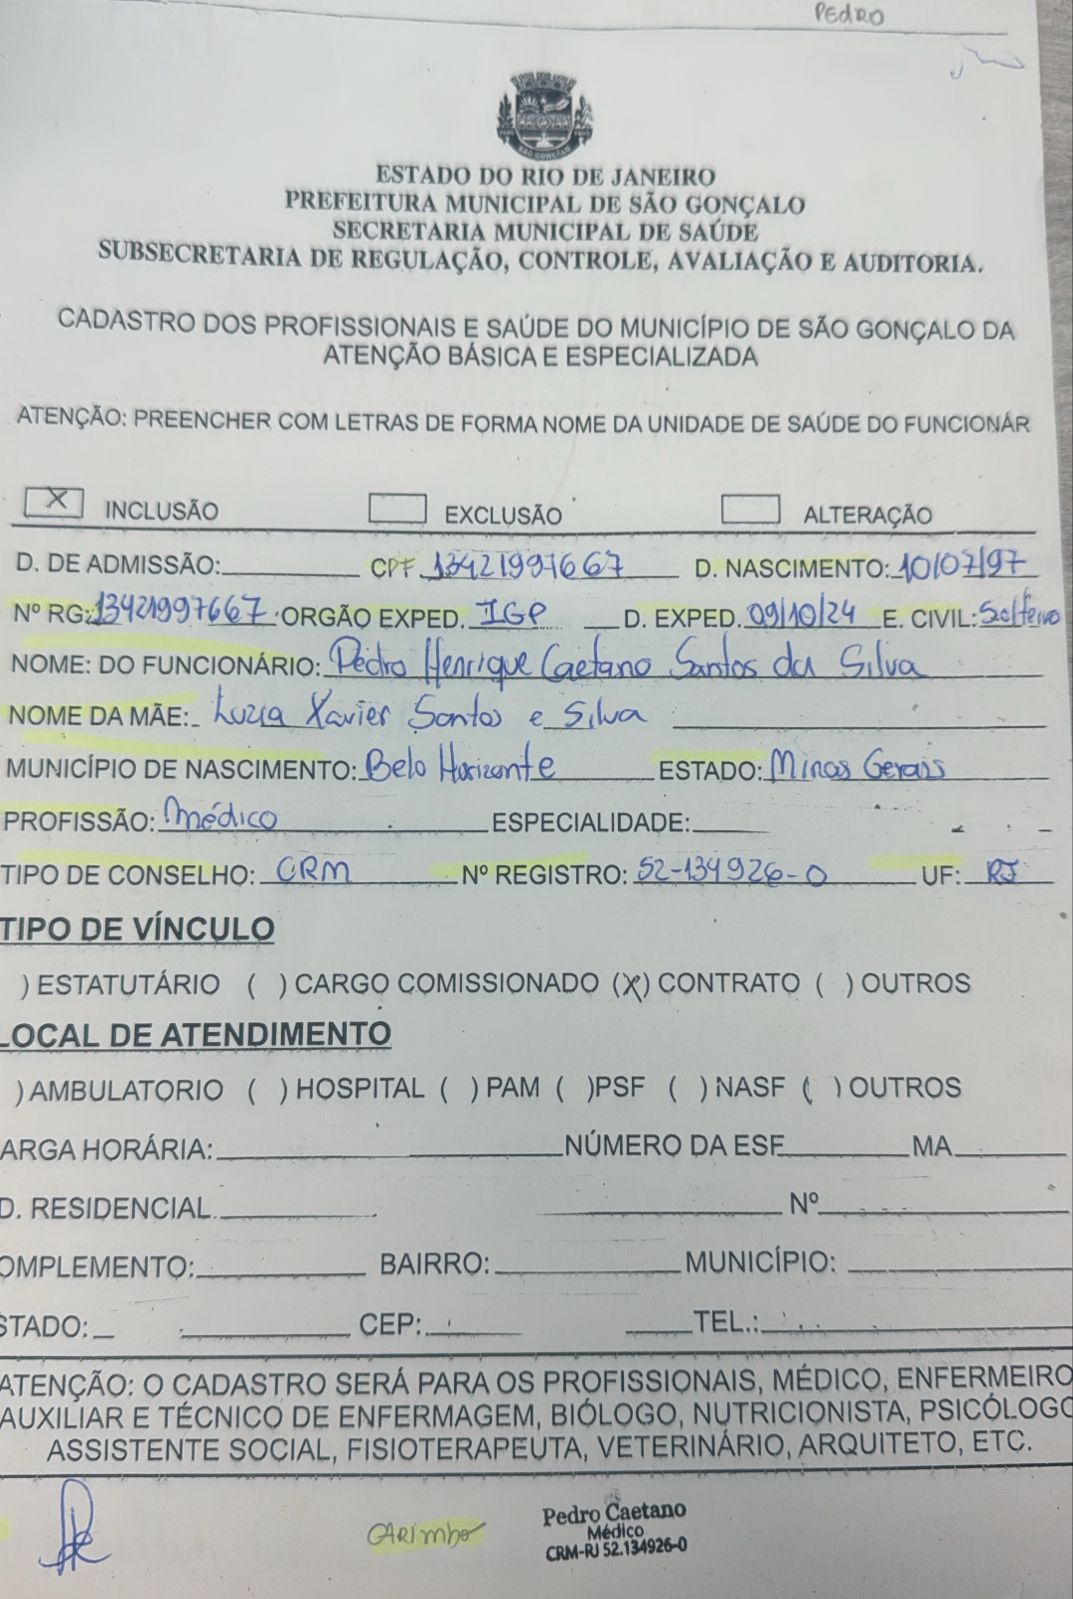 PEDRO
SÃO GONÇALO
ESTADO DO RIO DE JANEIRO
PREFEITURA MUNICIPAL DE SÃO GONÇALO
SECRETARIA MUNICIPAL DE SAÚDE
SUBSECRETARIA DE REGULAÇÃO, CONTROLE, AVALIAÇÃO E AUDITORIA.
CADASTRO DOS PROFISSIONAIS E SAÚDE DO MUNICÍPIO DE SÃO GONÇALO DA
ATENÇÃO BÁSICA E ESPECIALIZADA
ATENÇÃO: PREENCHER COM LETRAS DE FORMA NOME DA UNIDADE DE SAÚDE DO FUNCIONÁR
X INCLUSÃO EXCLUSÃO ALTERAÇÃO
D. DE ADMISSÃO: CPF. 13421997667 D. NASCIMENTO: 10/07/97
Nº RG: 13421997667 ORGÃO EXPED. IGP D. EXPED. 09/10/24 E. CIVIL: Solteiro
NOME: DO FUNCIONÁRIO: Pedro Henrique Caetano Santos da Silva
NOME DA MÃE: Luzia Xavier Santos e Silva
MUNICÍPIO DE NASCIMENTO: Belo Horizonte ESTADO: Minas Gerais
PROFISSÃO: Médico ESPECIALIDADE:
TIPO DE CONSELHO: CRM Nº REGISTRO: 52-134926-0 UF: RJ
TIPO DE VÍNCULO
) ESTATUTÁRIO ( ) CARGO COMISSIONADO (X) CONTRATO ( ) OUTROS
LOCAL DE ATENDIMENTO
) AMBULATORIO ( ) HOSPITAL ( ) PAM ( )PSF ( ) NASF ( ) OUTROS
ARGA HORÁRIA: NÚMERO DA ESF MA
D. RESIDENCIAL Nº
OMPLEMENTO: BAIRRO: MUNICÍPIO:
STADO: CEP: TEL.:
ATENÇÃO: O CADASTRO SERÁ PARA OS PROFISSIONAIS, MÉDICO, ENFERMEIRO
AUXILIAR E TÉCNICO DE ENFERMAGEM, BIÓLOGO, NUTRICIONISTA, PSICÓLOGO
ASSISTENTE SOCIAL, FISIOTERAPEUTA, VETERINÁRIO, ARQUITETO, ETC.
CARIMBO
Pedro Caetano
Médico
CRM-RJ 52.134926-0